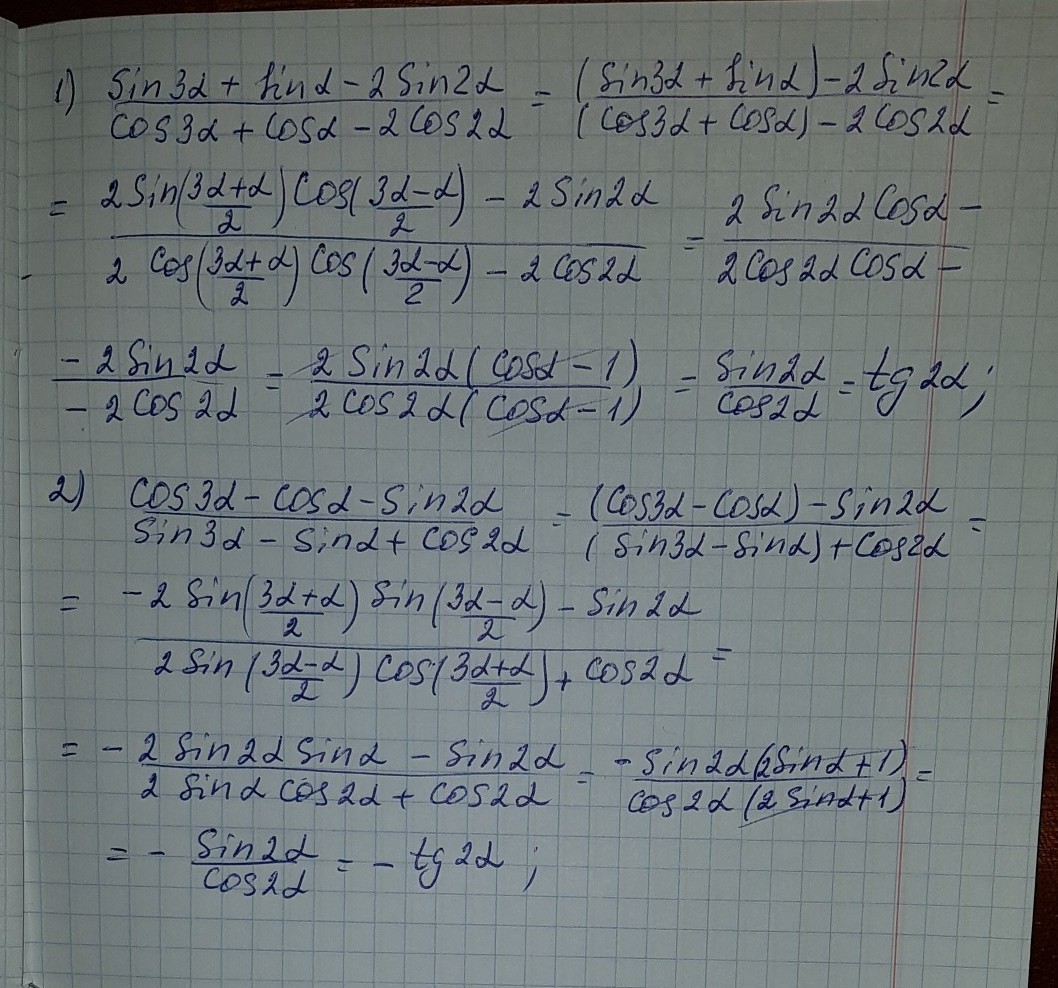 1) (sin3α + sinα - 2sin2α)/(cos3α + cosα - 2cos2α) = ((sin3α + sinα) - 2sin2α)/((cos3α + cosα) - 2cos2α) =
= (2sin((3α+α)/2)cos((3α-α)/2) - 2sin2α)/(2cos((3α+α)/2)cos((3α-α)/2) - 2cos2α) = (2sin2αcosα -)/(2cos2αcosα -)
(-2sin2α)/(-2cos2α) = (2sin2α(cosα-1))/(2cos2α(cosα-1)) = sin2α/cos2α = tg2α;
2) (cos3α - cosα - sin2α)/(sin3α - sinα + cos2α) = ((cos3α - cosα) - sin2α)/((sin3α - sinα) + cos2α) =
= (-2sin((3α+α)/2)sin((3α-α)/2) - sin2α)/(2sin((3α-α)/2)cos((3α+α)/2) + cos2α) =
= (-2sin2αsinα - sin2α)/(2sinαcos2α + cos2α) = (-sin2α(2sinα+1))/(cos2α(2sinα+1)) =
= - sin2α/cos2α = - tg2α;